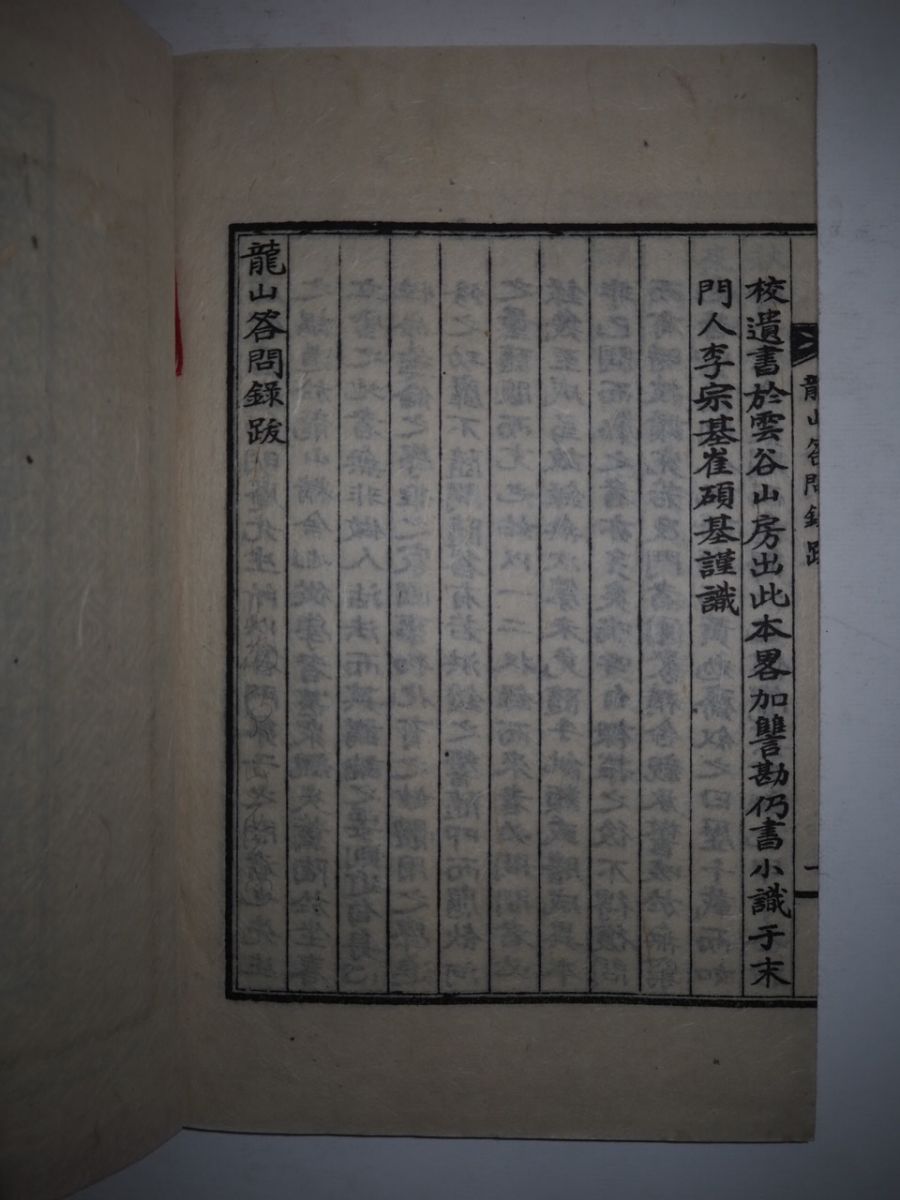 龍山答問錄跋
一
校遺書於雲谷山房出此本畧加讐勘仍書小識于末
門人李宗基崔碩基謹識
龍山答問錄跋